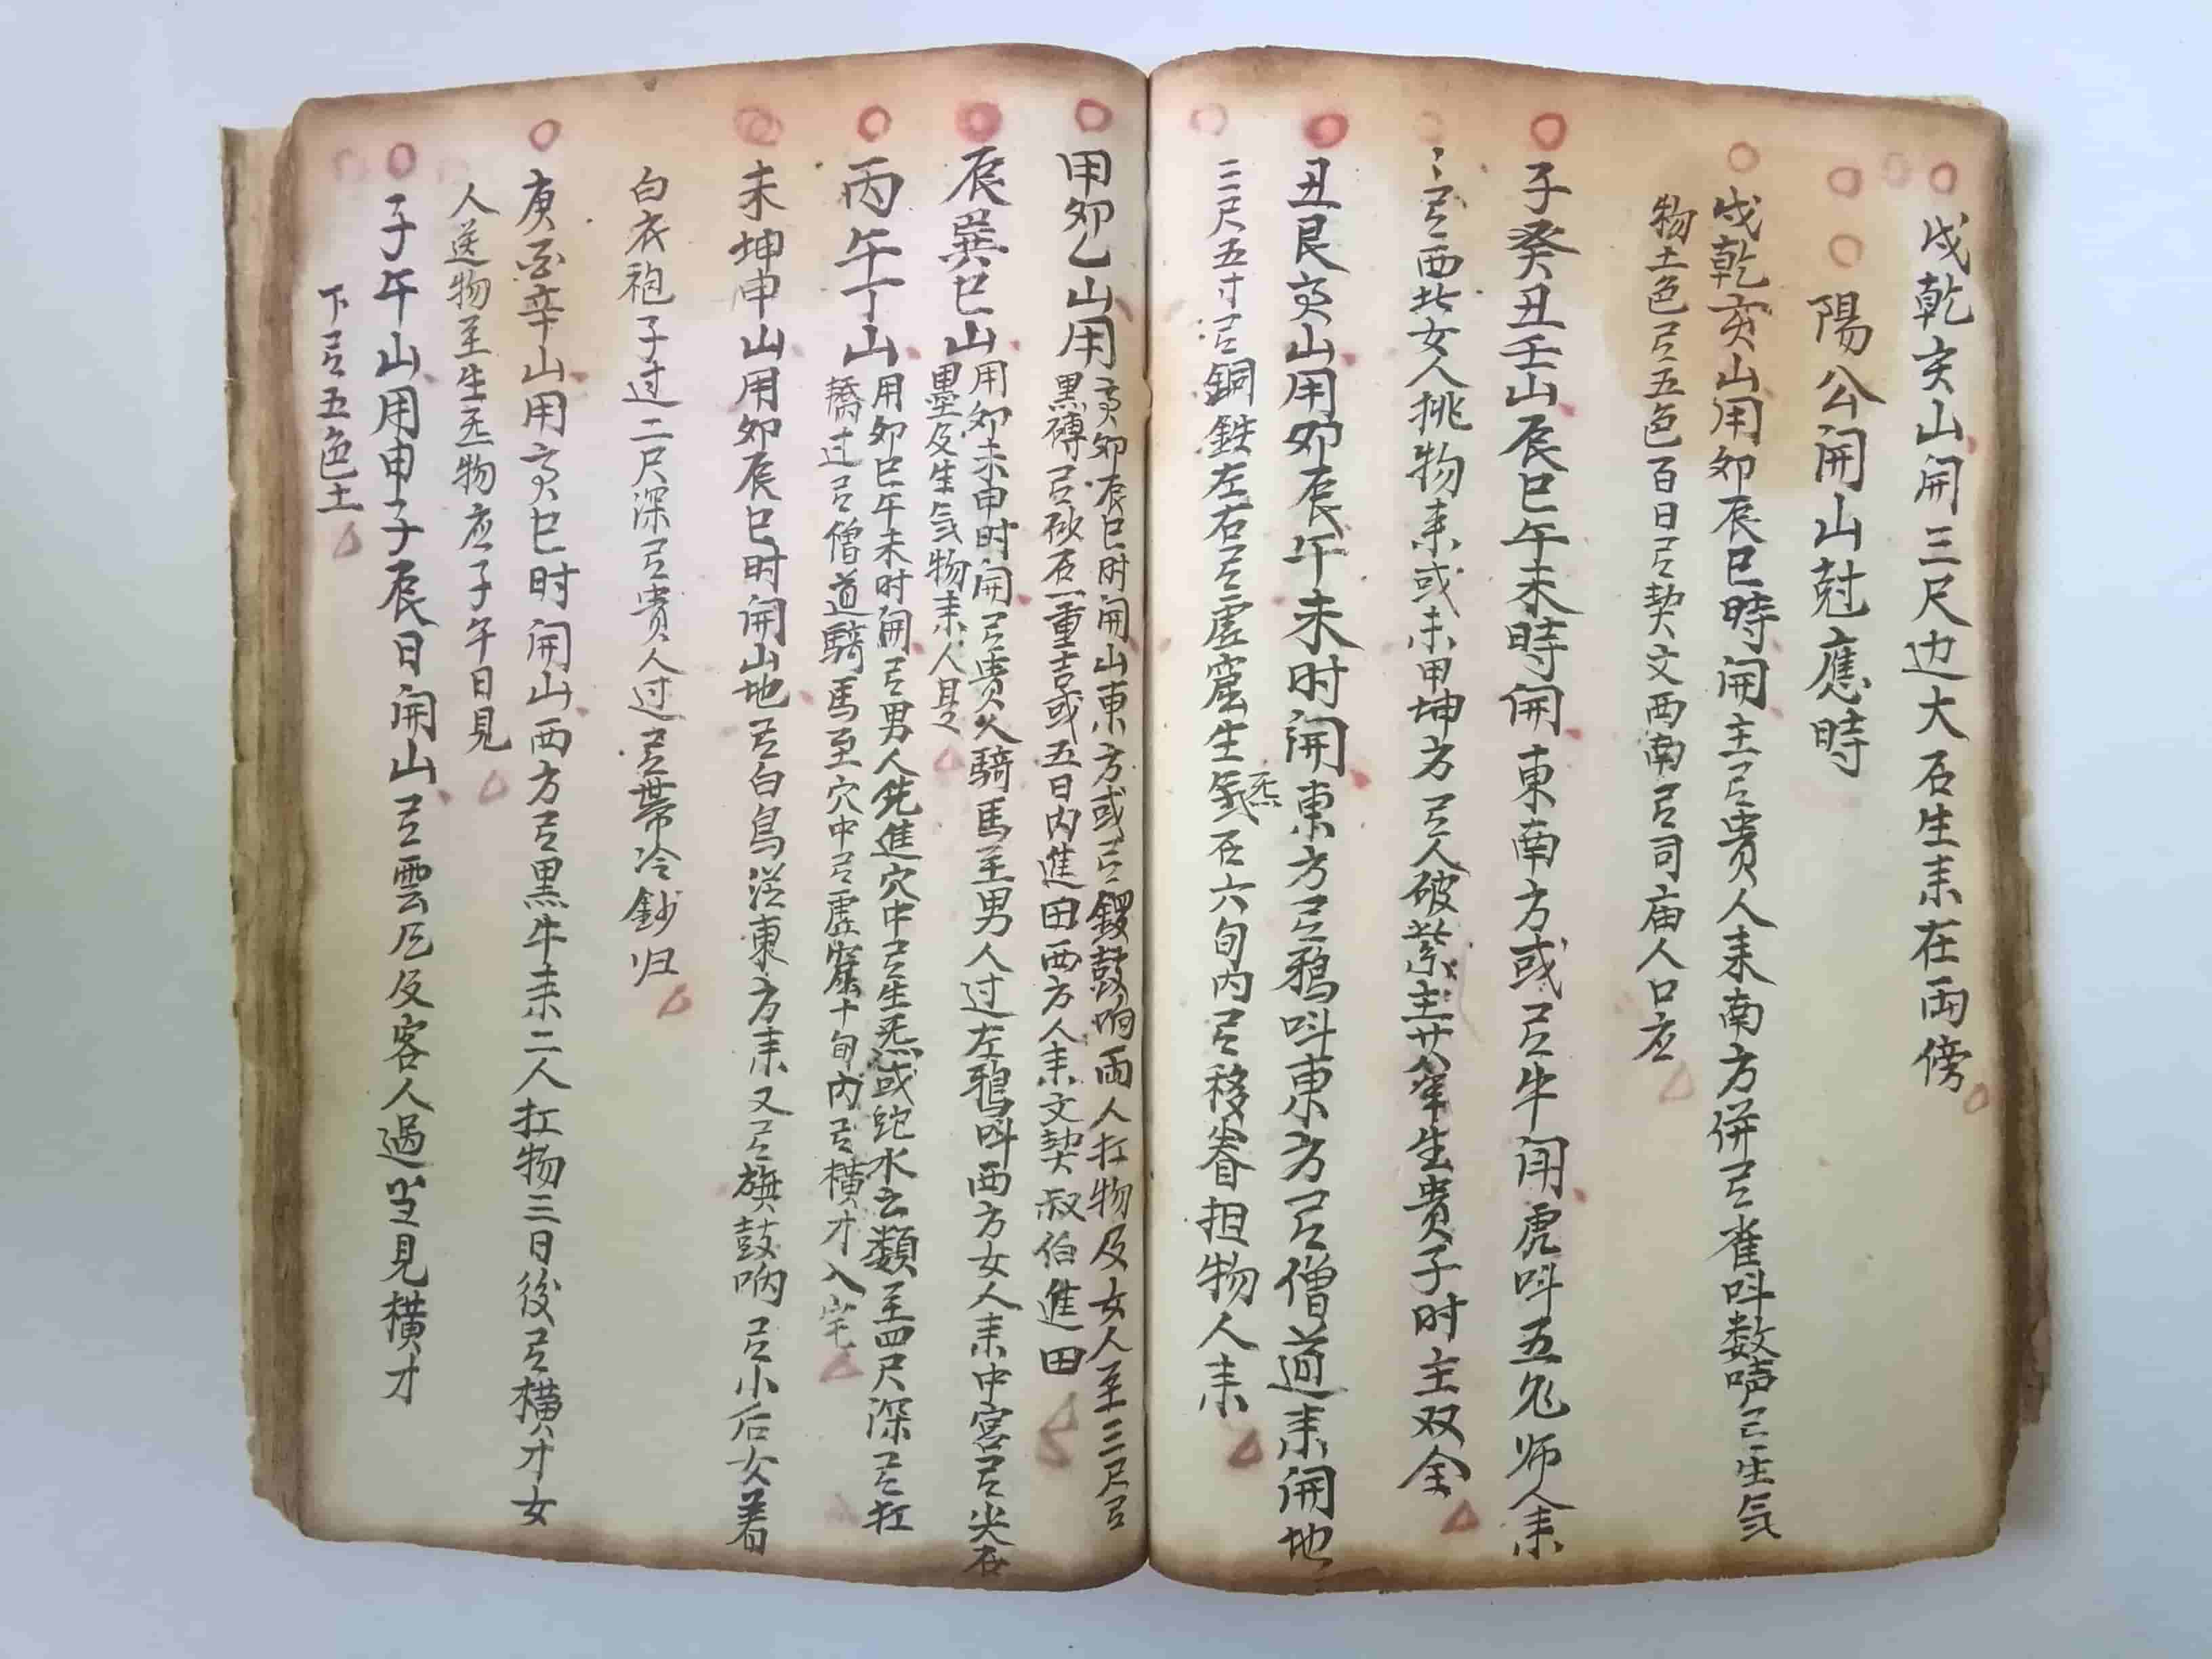 戌乾亥山開三尺边大石生耒在兩傍
陽公開山尅應時
戌乾亥山用卯辰巳時開主㠯貴人耒南方併㠯雀呌数声㠯生気
物土色㠯五色百日㠯契文西南㠯司庙人口应
子癸丑壬山辰巳午未時開東南方或㠯牛闹虎呌五鬼师人耒
㠯西北女人挑物耒或未甲坤方㠯人破主廿年生貴子时主双全
丑艮亥山用卯辰午未时開東方㠯鴉呌東方㠯僧道耒開地
二尺五寸㠯銅鉄左右㠯虗窟生気石六旬内㠯移眷担物人耒
甲卯乙山用亥卯辰巳时開山東方或㠯鑼鼓响兩人扛物及女人至三尺㠯
黒磚㠯砂石一重吉或五日内進田西方人耒文契叔伯進田
辰巽巳山用卯未申时開㠯貴人騎馬至男人过左鴉呌西方女人耒中宮㠯尖石
墨及生気物耒人是
丙午丁山用卯巳午未时開㠯男人先進穴中㠯生炁或蛇水之類至四尺深㠯扛
轎过㠯僧道騎馬至穴中㠯虚窟十旬内㠯横才入宅
未坤申山用卯辰巳时開山地㠯白鳥從東方耒又㠯旗鼓响㠯小后女着
白衣袍子过二尺深㠯貴人过㠯帶冷鈔归
庚酉辛山用亥巳时開山西方㠯黒牛耒二人扛物三日後㠯横才女
人送物至生炁物应子午日見
子午山用申子辰日開山㠯雲厄及客人過坐見横才
下㠯五色土